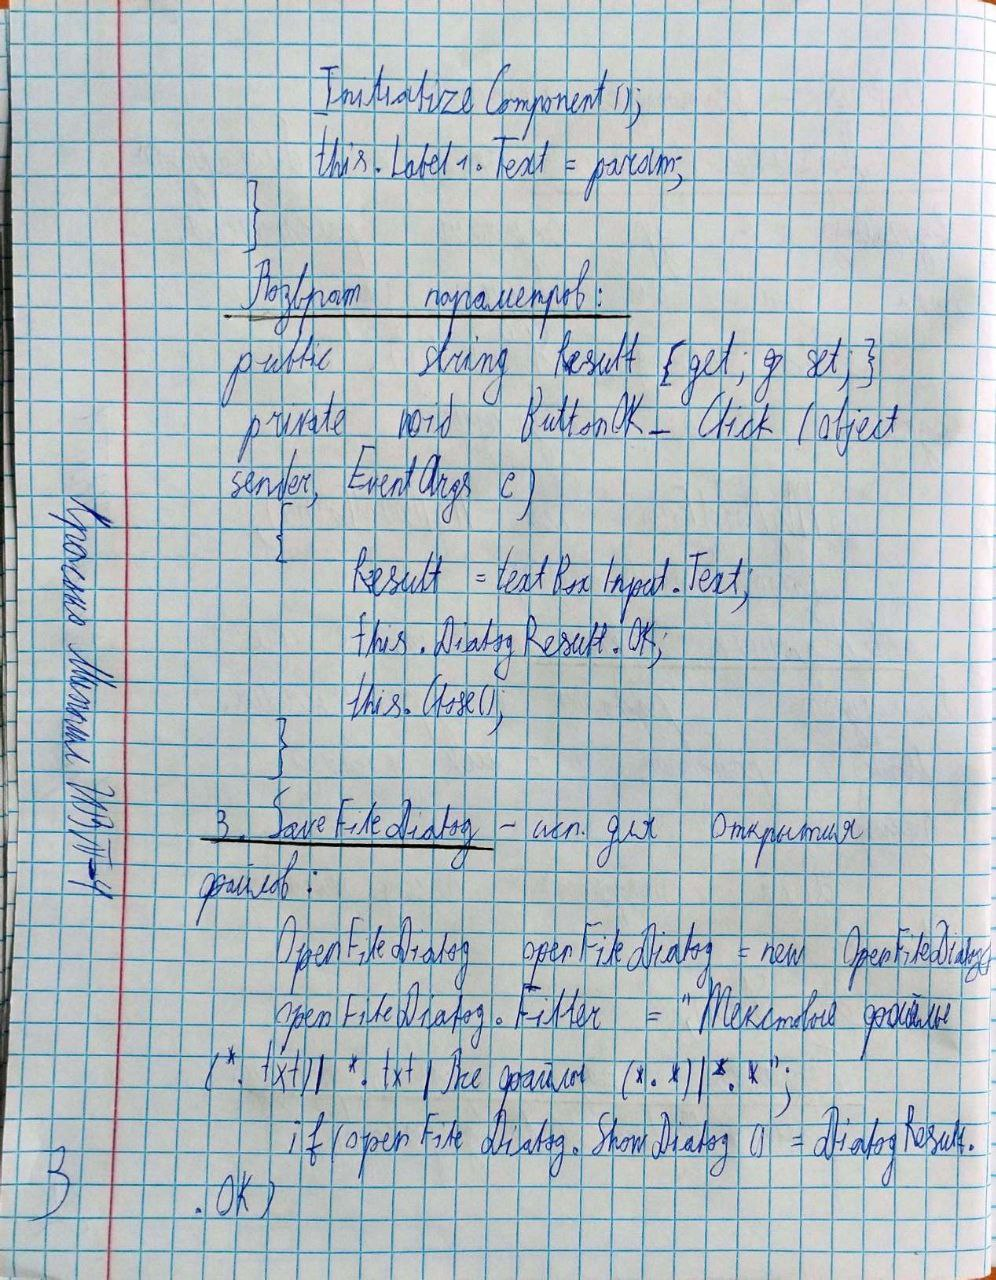 InitializeComponent();
this.Label1.Text = param;
}
Возврат параметров:
public string Result {get; set;}
private void ButtonOK_Click (object
sender, EventArgs e)
{
Result = textBoxInput.Text;
this.DialogResult.OK;
this.Close();
}
3. SaveFileDialog - исп. для открытия
файлов:
OpenFileDialog openFileDialog = new OpenFileDialog
openFileDialog.Filter = "Текстовые файлы
(*.txt)|*.txt|Все файлы (*.*)|*.*";
if (openFileDialog.ShowDialog () = DialogResult.
.OK)
Михаил
3